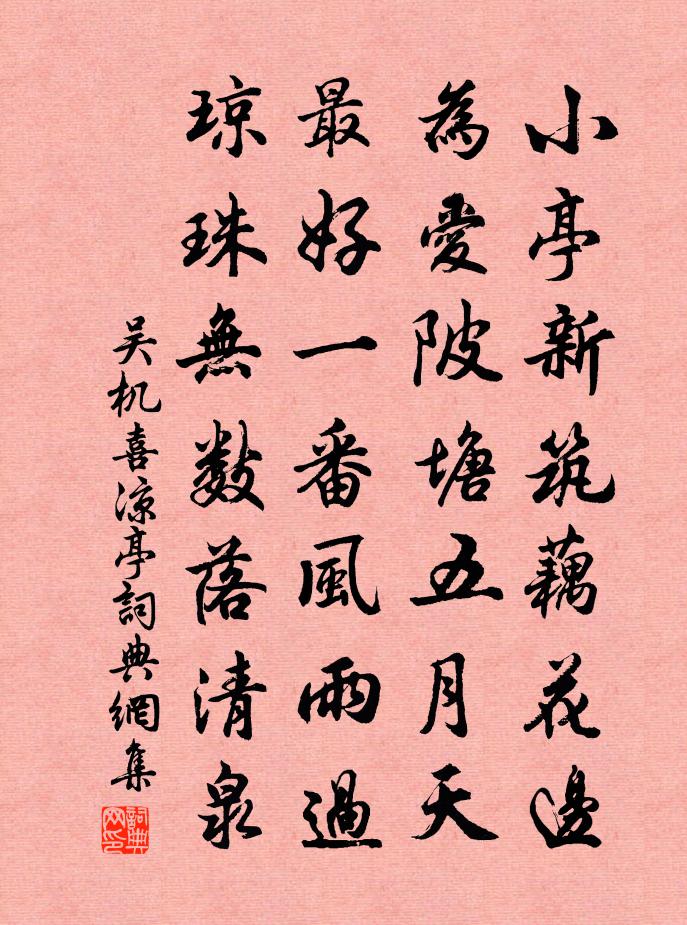 小亭新筑藕花邊
為愛陂塘五月天
最好一番風雨過
琼珠無数落清泉
吴机喜凉亭詞典網集
詞典网印